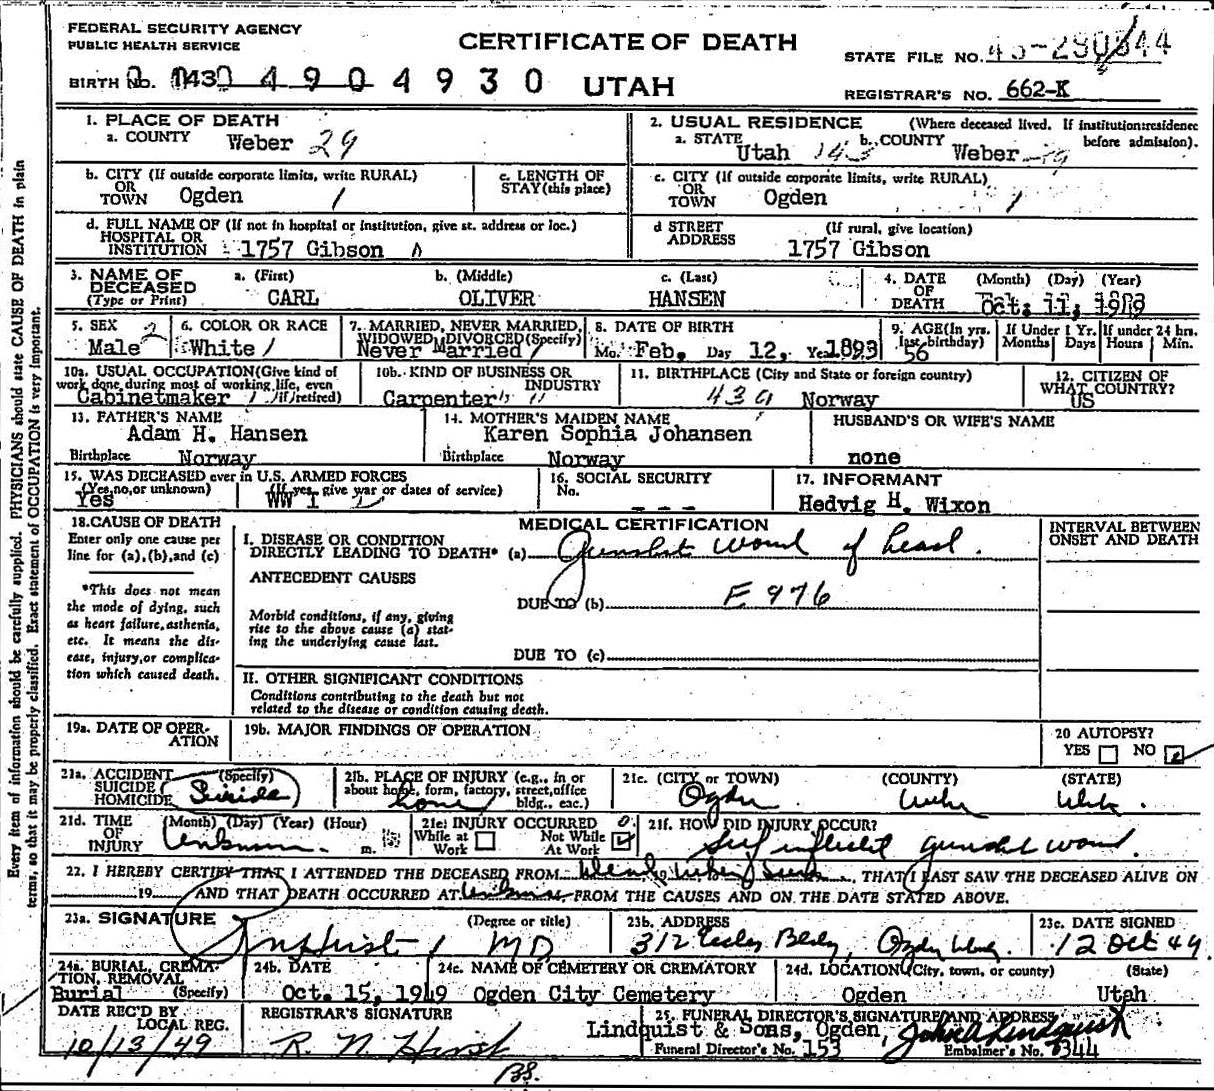 FEDERAL SECURITY AGENCY
PUBLIC HEALTH SERVICE
CERTIFICATE OF DEATH
UTAH
STATE FILE NO.
BIRTH No. 4904930
REGISTRAR'S NO. 662-K
1. PLACE OF DEATH
a. COUNTY Weber 29
2. USUAL RESIDENCE (Where deceased lived. If institution:residence before admission).
a. STATE Utah b. COUNTY Weber
b. CITY (If outside corporate limits, write RURAL)
OR
TOWN Ogden 1
c. LENGTH OF
STAY(this place)
c. CITY (If outside corporate limits, write RURAL)
OR
TOWN Ogden 1
d. FULL NAME OF (If not in hospital or institution, give st. address or loc.)
HOSPITAL OR
INSTITUTION 1757 Gibson
d STREET (If rural, give location)
ADDRESS 1757 Gibson
3. NAME OF
DECEASED
(Type or Print)
a. (First) CARL
b. (Middle) OLIVER
c. (Last) HANSEN
4. DATE (Month) (Day) (Year)
OF
DEATH Oct. 11,
5. SEX Male
6. COLOR OR RACE White
7. MARRIED, NEVER MARRIED,
WIDOWED DIVORCED(Specify)
Never Married
8. DATE OF BIRTH
Mo. Feb, Day 12, Year 1893
9. AGE(In yrs.
last birthday) 56
If Under 1 Yr.
Months Days
If under 24 hrs.
Hours Min.
10a. USUAL OCCUPATION(Give kind of
work done during most of working life, even
if retired)
Cabinetmaker
10b. KIND OF BUSINESS OR
INDUSTRY
Carpenter
11. BIRTHPLACE (City and State or foreign country)
Norway
12. CITIZEN OF
WHAT COUNTRY?
US
13. FATHER'S NAME
Adam H. Hansen
Birthplace Norway
14. MOTHER'S MAIDEN NAME
Karen Sophia Johansen
Birthplace Norway
HUSBAND'S OR WIFE'S NAME
none
15. WAS DECEASED ever in U.S. ARMED FORCES
(Yes,no,or unknown) (If yes, give war or dates of service)
Yes WW 1
16. SOCIAL SECURITY
No. - - -
17. INFORMANT
Hedvig H. Wixon
18.CAUSE OF DEATH
Enter only one cause per
line for (a),(b),and (c)
*This does not mean
the mode of dying, such
as heart failure,asthenia,
etc. It means the dis-
ease, injury,or complica-
tion which caused death.
MEDICAL CERTIFICATION
INTERVAL BETWEEN
ONSET AND DEATH
I. DISEASE OR CONDITION
DIRECTLY LEADING TO DEATH* (a) Gunshot wound of head.
ANTECEDENT CAUSES
DUE TO (b) E 976
Morbid conditions, if any, giving
rise to the above cause (a) stat-
ing the underlying cause last.
DUE TO (c)
II. OTHER SIGNIFICANT CONDITIONS
Conditions contributing to the death but not
related to the disease or condition causing death.
19a. DATE OF OPER-
ATION
19b. MAJOR FINDINGS OF OPERATION
20 AUTOPSY?
YES NO
21a. ACCIDENT (Specify)
SUICIDE
HOMICIDE Suicide
21b. PLACE OF INJURY (e.g., in or
about home, form, factory, street,office
bldg., eac.)
home
21c. (CITY or TOWN) (COUNTY) (STATE)
Ogden Weber Utah
21d. TIME (Month) (Day) (Year) (Hour)
OF
INJURY Unknown m.
21e. INJURY OCCURRED
While at
Work
Not While
At Work
21f. HOW DID INJURY OCCUR?
Self inflicted gunshot wound.
22. I HEREBY CERTIFY THAT I ATTENDED THE DECEASED FROM 19 , THAT I LAST SAW THE DECEASED ALIVE ON
19 AND THAT DEATH OCCURRED AT Unknown FROM THE CAUSES AND ON THE DATE STATED ABOVE.
23a. SIGNATURE (Degree or title)
Hirst, MD
23b. ADDRESS
312 Eccles Bldg, Ogden Utah.
23c. DATE SIGNED
12 Oct 49
24a. BURIAL, CREMA-
TION, REMOVAL
Burial (Specify)
24b. DATE
Oct. 15, 1949
24c. NAME OF CEMETERY OR CREMATORY
Ogden City Cemetery
24d. LOCATION (City, town, or county) (State)
Ogden Utah
DATE REC'D BY
LOCAL REG.
10/13/49
REGISTRAR'S SIGNATURE
R. N. Hirst
BS.
25. FUNERAL DIRECTOR'S SIGNATURE AND ADDRESS
Lindquist & Sons, Ogden, John A Lindquist
Funeral Director's No. 153 Embalmer's No. 344
Every item of information should be carefully supplied. PHYSICIANS should state CAUSE OF DEATH in plain
terms, so that it may be properly classified. Exact statement of OCCUPATION is very important.